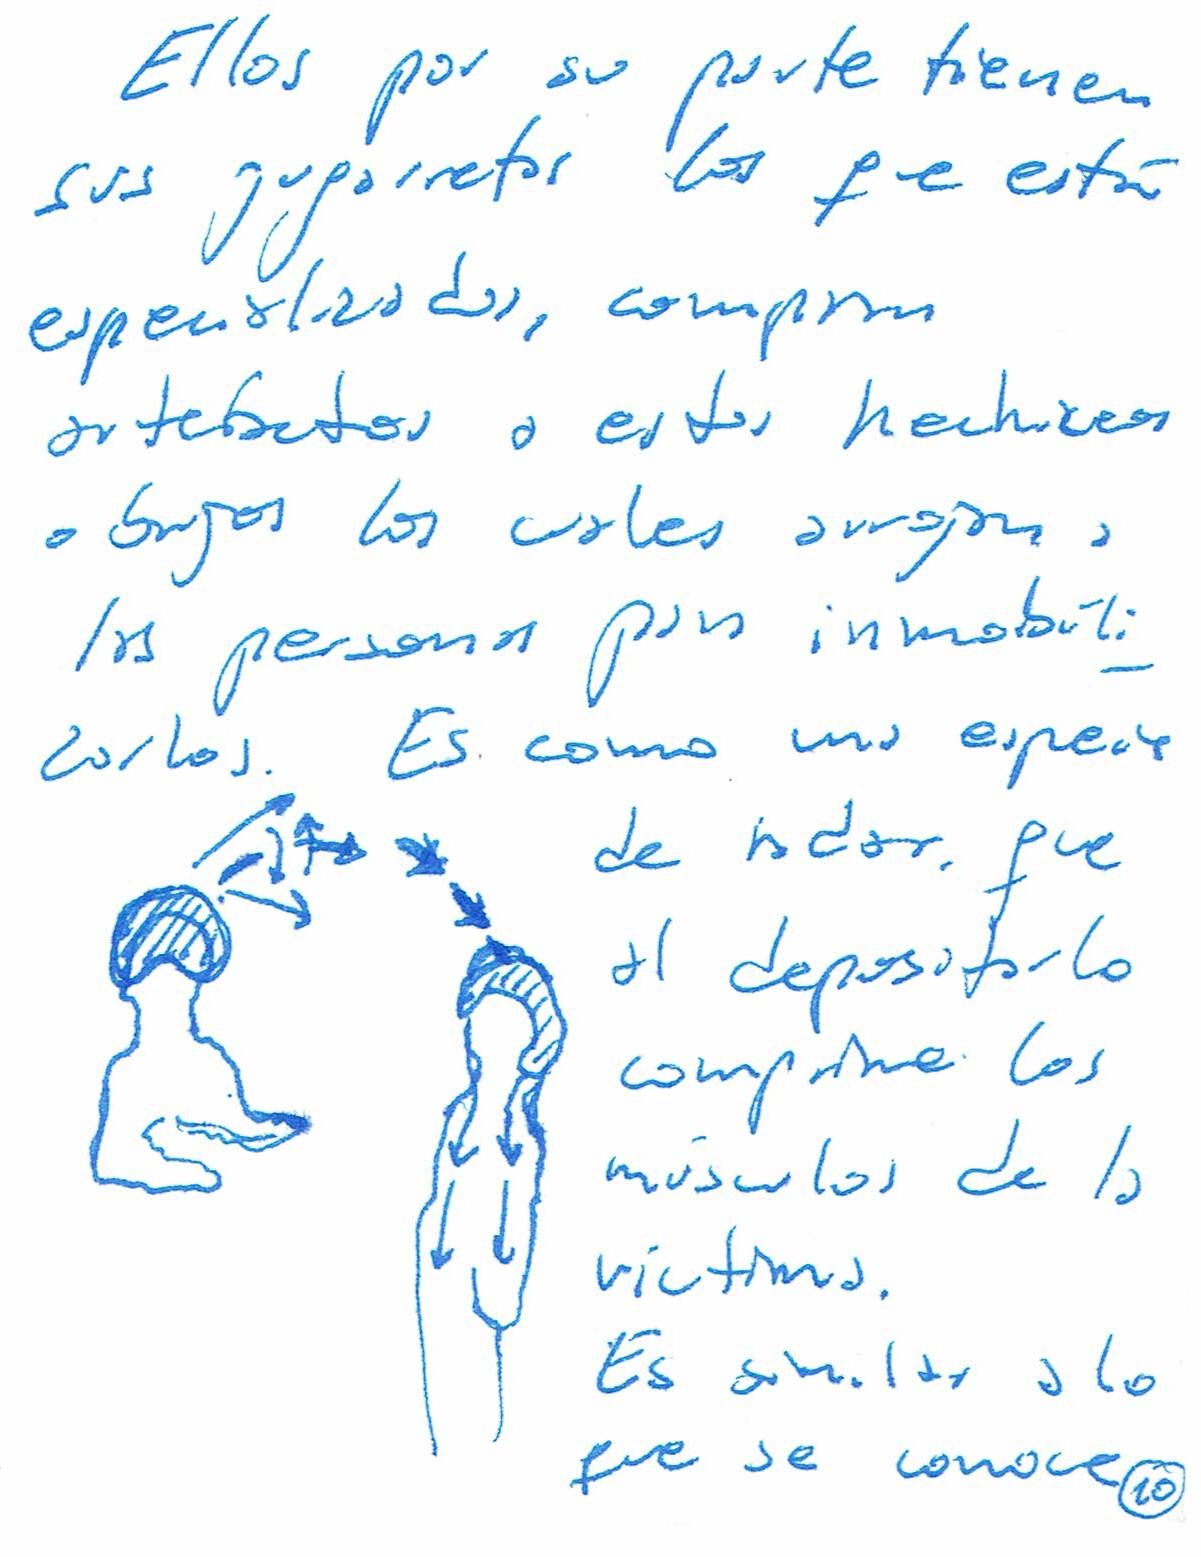 Ellos por su parte tienen
sus los que están
especializados, compran
artefactos a estos hechiceros
o brujos los cuales arrojan a
las personas para inmobili
zarlos. Es como una especie
de radar, que
al depositarlo
comprime los
músculos de la
víctima.
Es similar a lo
que se conoce
10